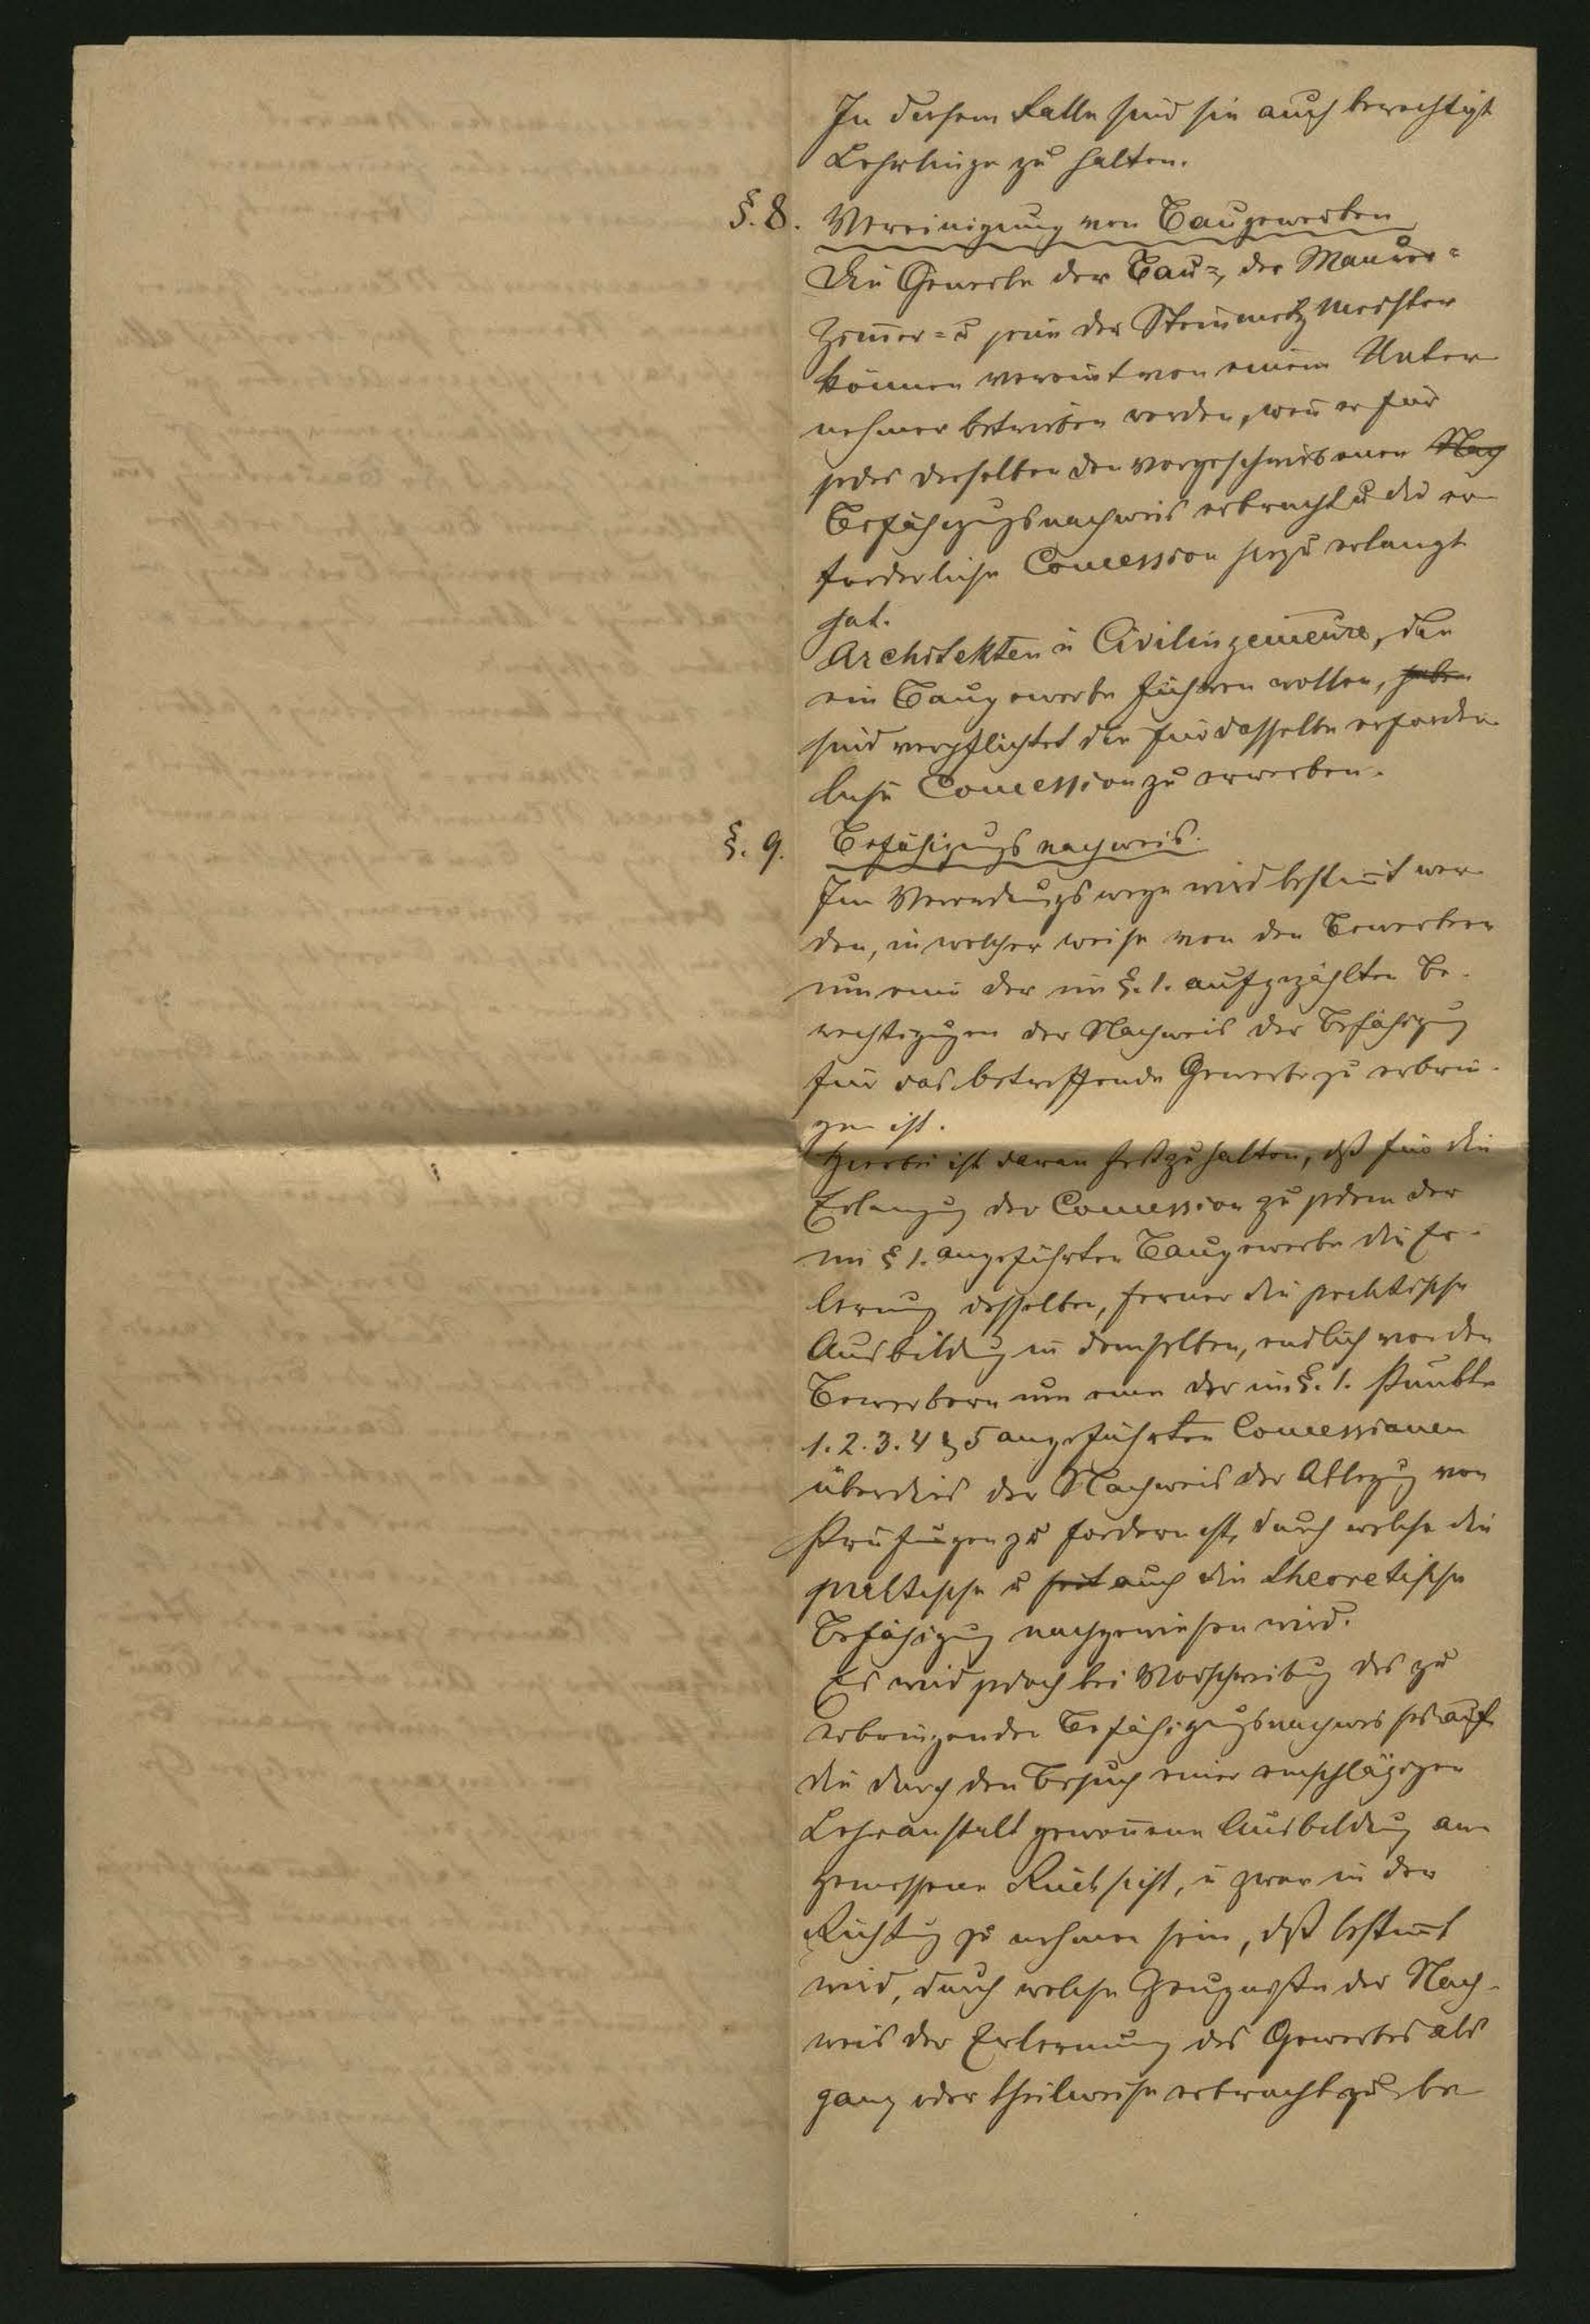 In diesem Falle sind sie auch berechtigt
Lehrlinge zu halten.
§. 8. Vereinigung von Baugewerben
Die Gewerbe der Bau=, der Maurer=
Zim̄er= u jene der Steinmetzmeister
können vereint von einem Unter
nehmer betrieben werden, wen̄ er für
jedes derselben den vorgeschriebenen Nach
Befähigungsnachweis erbracht u die er
forderliche Concession hiezu erlangt
hat.
Architekten u Civilingenieure, die
ein Baugewerbe führen wollen, haben
sind verpflichtet die für dasselbe erforder
liche Concession zu erwerben.
§. 9. Befähigungsnachweis.
Im Verordnungswege wird bestim̄t wer
den, in welcher Weise von den Bewerbern
um eine der im §. 1. aufgezählten Be-
rechtigungen der Nachweis der Befähigung
für das betreffende Gewerbe zu erbrin-
gen ist.
Hierbei ist daran festzuhalten, dß für die
Erlangung der Concession zu jedem der
im § 1. angeführten Baugewerbe die Er-
lernung desselben, ferner die praktische
Ausbildung in demselben, endlich von den
Bewerbern um eine der im §. 1. Punkte
1. 2. 3. 4 & 5 angeführten Concessionen
überdies der Nachweis der Ablegung von
Prüfungen zu fordern ist, durch welche die
praktische u auch die theoretische
Befähigung nachgewiesen wird.
Es wird jedoch bei Vorschreibung des zu
erbringenden Befähigungsnachweises auf
die durch den Besuch einer einschlägigen
Lehranstalt gewon̄ene Ausbildung an
gemessene Rücksicht, u zwar in der
Richtung zu nehmen sein, dß bestim̄t
wird, durch welche Zeugnisse der Nach-
weis der Erlernung des Gewerbes als
ganz oder theilweise erbracht zu be